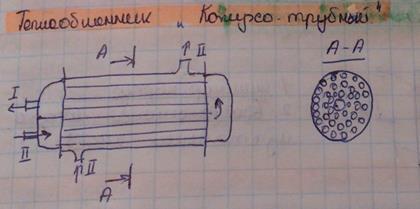 Теплообменник „Кожухо-трубный"
A
II
A-A
I
II
II
A